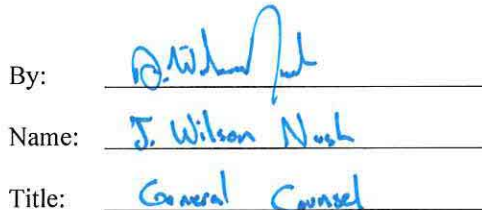 By:
Name: J. Wilson Nash
Title: General Counsel